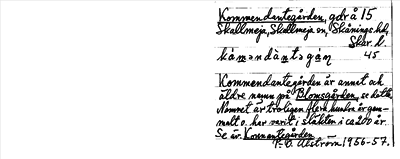 Kommendantegården, gdr å 15
Skallmeja, Skallmeja sn, Skånings hd,
Skar. l.
kòmәndàntәgán 45
Kommendantegården är annat och
äldre namn på Blomsgården, se detta.
Namnet är troligen flera hundra år gam-
malt o. har varit i släkten i ca 200 år.
Se äv. Konnantegården
P-O. Alström 1956-57.